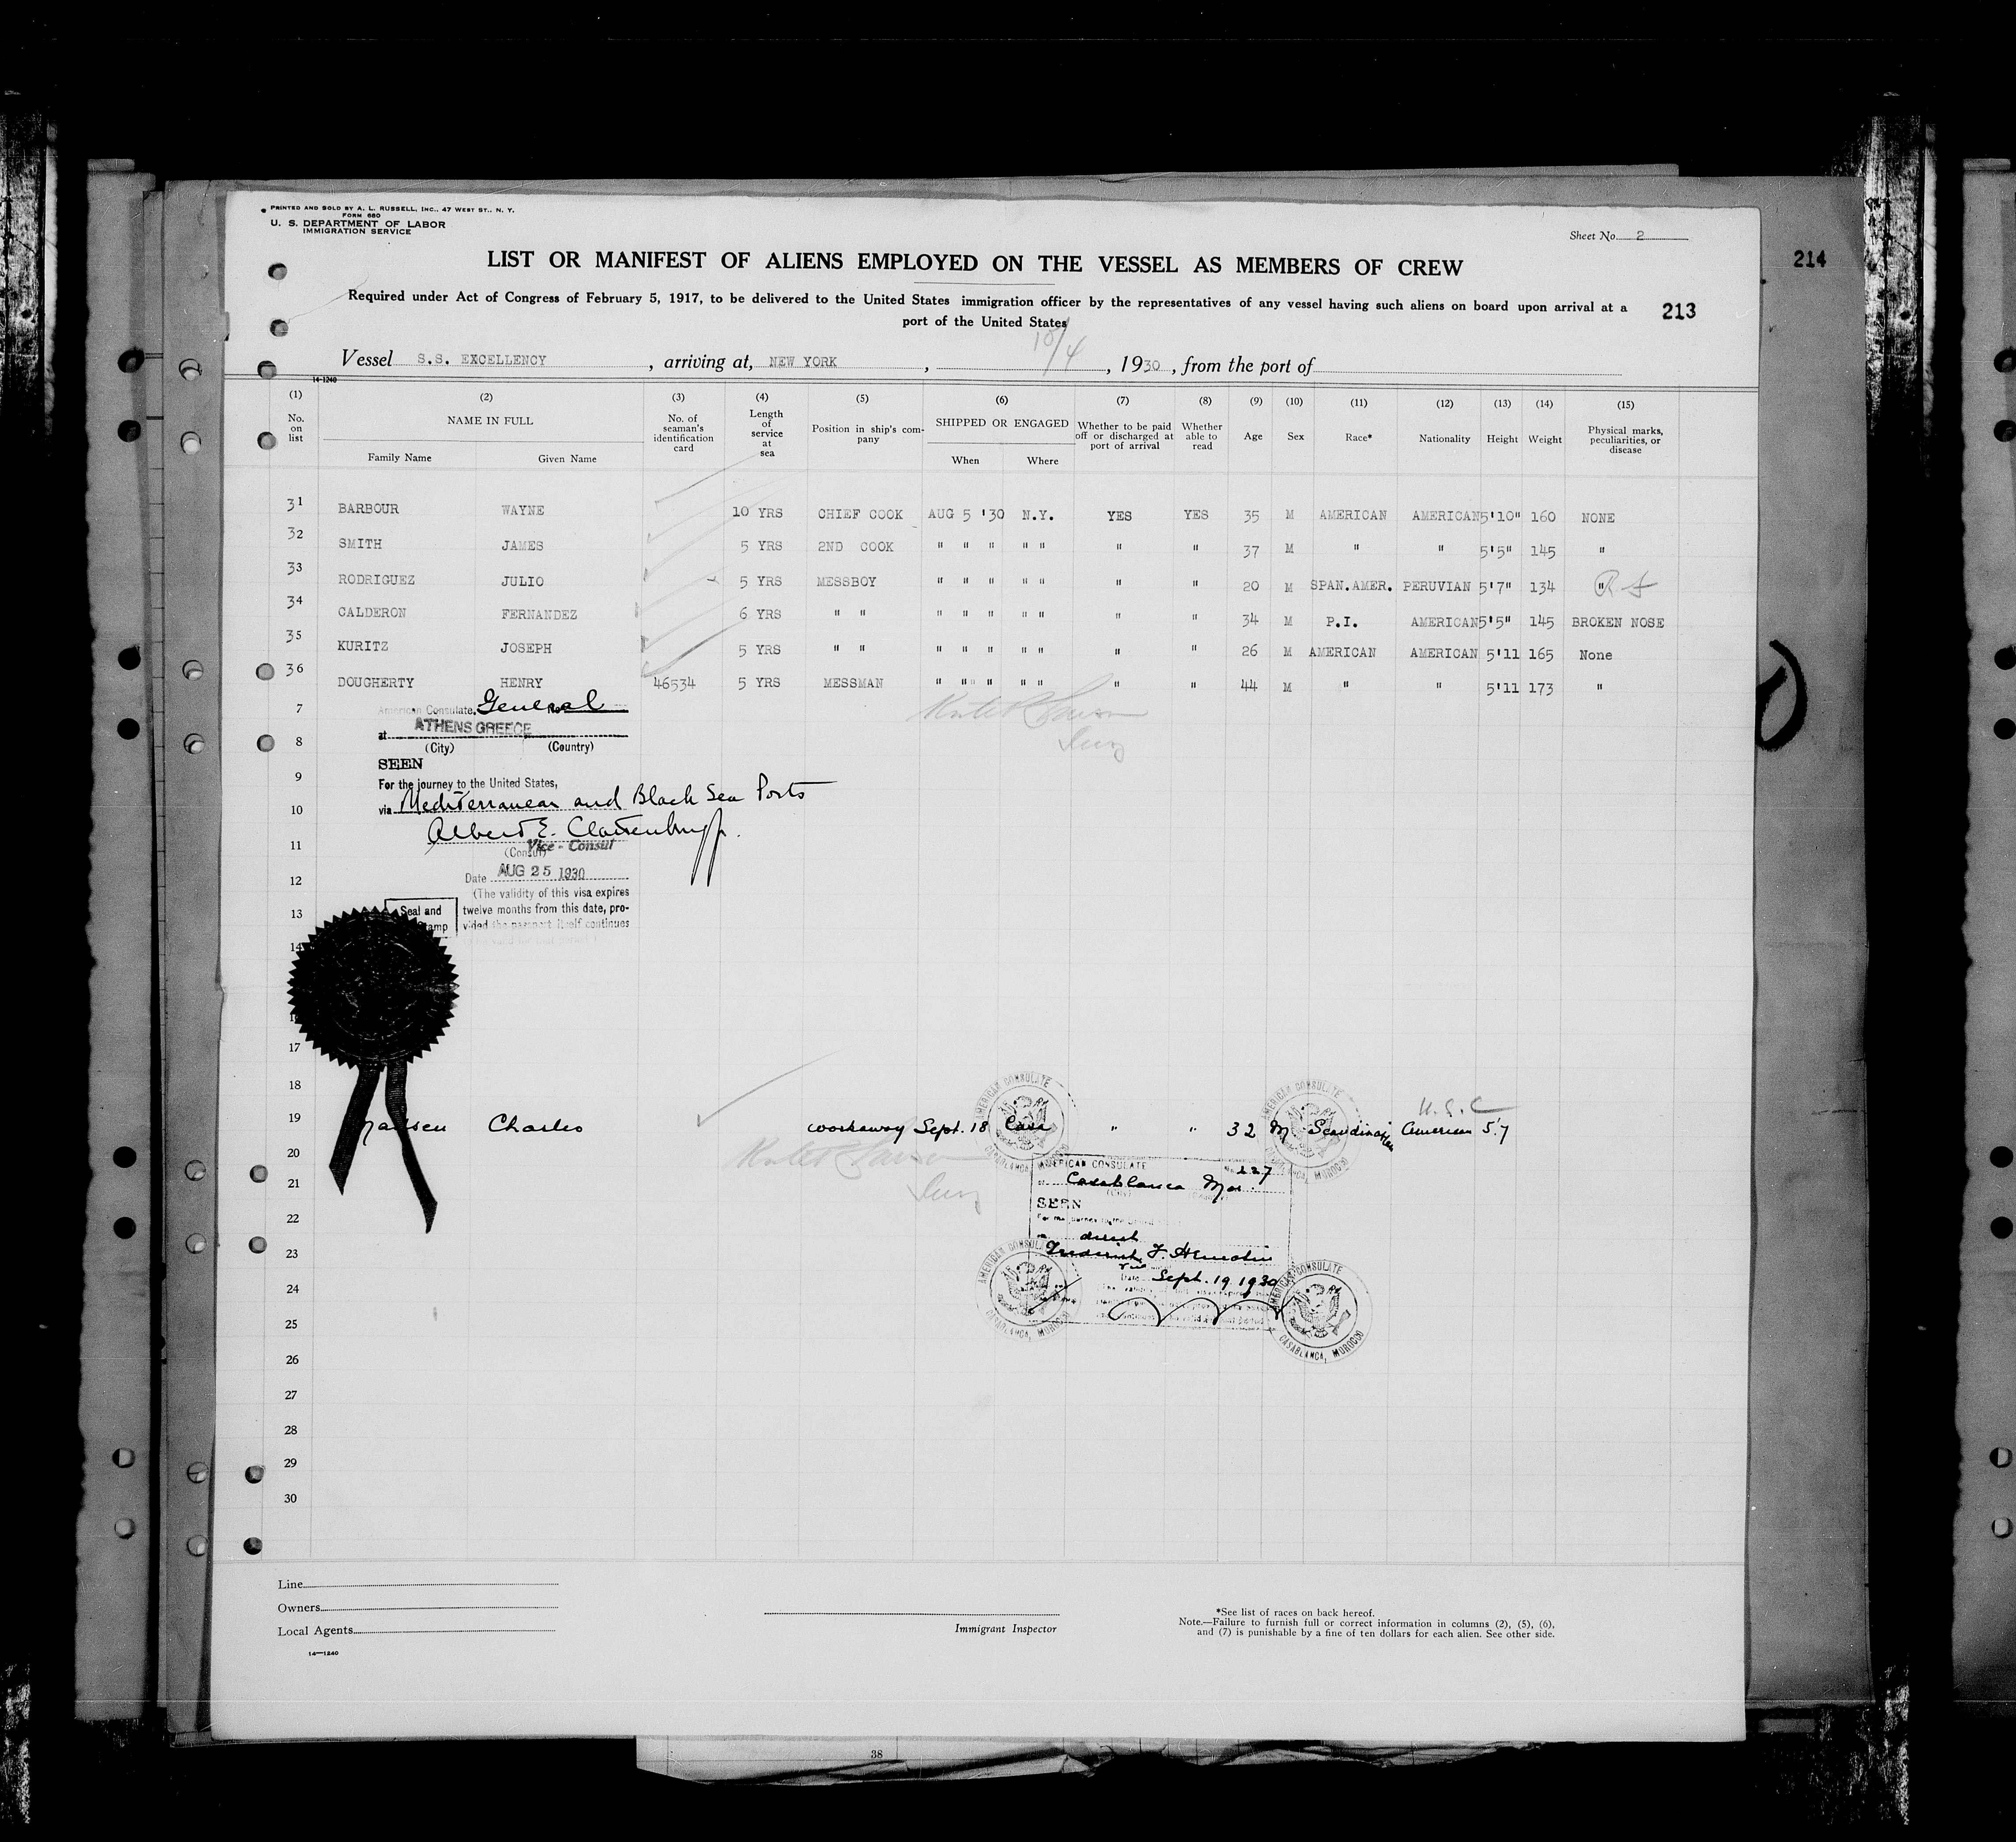 PRINTED AND SOLD BY A. L. RUSSELL, INC., 47 WEST ST., N. Y.
FORM 680
U. S. DEPARTMENT OF LABOR
IMMIGRATION SERVICE
Sheet No. 2
214
LIST OR MANIFEST OF ALIENS EMPLOYED ON THE VESSEL AS MEMBERS OF CREW
Required under Act of Congress of February 5, 1917, to be delivered to the United States immigration officer by the representatives of any vessel having such aliens on board upon arrival at a
port of the United States
213
10/4
Vessel S.S. EXCELLENCY, arriving at, NEW YORK, , 1930, from the port of
14-1240
(1) (2) (3) (4) (5) (6) (7) (8) (9) (10) (11) (12) (13) (14) (15)
No. on list
NAME IN FULL
Family Name Given Name
No. of seaman's identification card
Length of service at sea
Position in ship's company
SHIPPED OR ENGAGED
When Where
Whether to be paid off or discharged at port of arrival
Whether able to read
Age Sex Race* Nationality Height Weight
Physical marks, peculiarities, or disease
31 BARBOUR WAYNE 10 YRS CHIEF COOK AUG 5 '30 N.Y. YES YES 35 M AMERICAN AMERICAN 5'10" 160 NONE
32 SMITH JAMES 5 YRS 2ND COOK " " " " " " " 37 M " " 5'5" 145 "
33 RODRIGUEZ JULIO 5 YRS MESSBOY " " " " " " " 20 M SPAN.AMER. PERUVIAN 5'7" 134 "
34 CALDERON FERNANDEZ 6 YRS " " " " " " " " " 34 M P.I. AMERICAN 5'5" 145 BROKEN NOSE
35 KURITZ JOSEPH 5 YRS " " " " " " " " " 26 M AMERICAN AMERICAN 5'11 165 None
36 DOUGHERTY HENRY 46534 5 YRS MESSMAN " " " " " " " 44 M " " 5'11 173 "
7
American Consulate General No.
at ATHENS GREECE
8
(City) (Country)
SEEN
9
For the journey to the United States,
10
via Mediterranean and Black Sea Ports
Albert E. Clattenburg Jr.
11
(Consul) Vice-Consul
12
Date AUG 25 1930
(The validity of this visa expires
13
Seal and Stamp
twelve months from this date, pro-
vided the passport itself continues
14
17
18
19 Charles workaway Sept. 18 Casa " " 32 M Scandinavian American 5.7
U.S.C
20
AMERICAN CONSULATE No. 227
21
Casablanca Mor.
SEEN
22
direct
23
24
Sept. 19 1930
25
AMERICAN CONSULATE CASABLANCA, MOROCCO
AMERICAN CONSULATE CASABLANCA, MOROCCO
AMERICAN CONSULATE CASABLANCA, MOROCCO
AMERICAN CONSULATE CASABLANCA, MOROCCO
26
27
28
29
30
Line
Owners
Local Agents
14—1240
Immigrant Inspector
*See list of races on back hereof.
Note.—Failure to furnish full or correct information in columns (2), (5), (6),
and (7) is punishable by a fine of ten dollars for each alien. See other side.
38